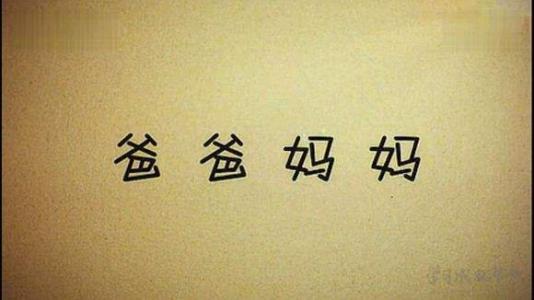 爸爸妈妈